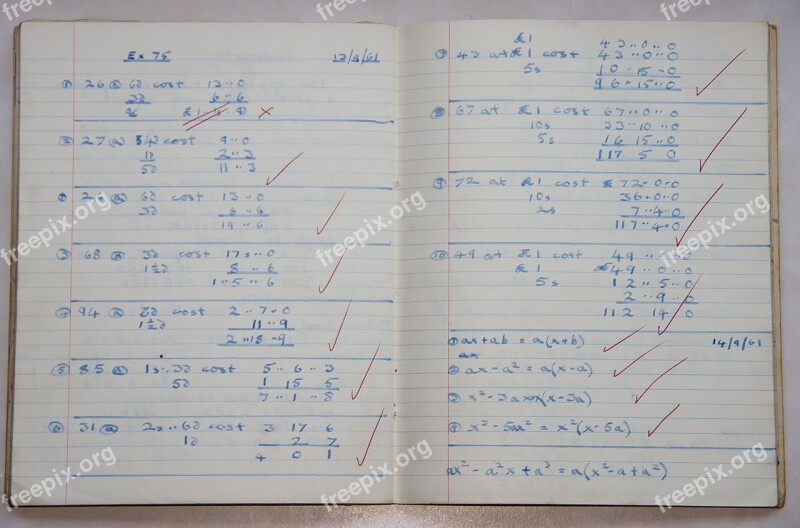 Ex 75 13/9/61
① 26 @ 6d cost 13 .. 0
3d 6 .. 6
£1
② 27 @ cost 9 .. 0
2 .. 3
5d 11 .. 3
26 @ 6d cost 13 .. 0
3d 6 .. 6
19 .. 6
③ 68 @ 3d cost 17s .. 0
1½d 8 .. 6
1 .. 5 .. 6
④ 94 @ cost 2 .. 7 .. 0
1½d 11 .. 9
2 .. 18 .. 9
⑤ 85 @ 1s .. 3d cost 5 .. 6 .. 3
5d 1 15 5
7 .. 1 .. 8
⑥ 31 @ 2s .. 6d cost 3 17 6
1d 2 7
4 0 1
£1 43 .. 0 .. 0
⑦ 43 at £1 cost 43 .. 0 .. 0
5s 10 .. 15 .. 0
96 .. 15 .. 0
⑧ 67 at £1 cost 67 .. 0 .. 0
10s 33 .. 10 .. 0
5s 16 15 .. 0
117 5 0
⑨ 72 at £1 cost £72 .. 0 .. 0
10s 36 .. 0 .. 0
2s 7 .. 4 .. 0
117 .. 4 .. 0
⑩ 49 at £1 cost 49 .. 0
£1 49 .. 0 .. 0
5s 12 .. 5 .. 0
2 .. 9 .. 0
112 14 0
① ax + ab = a(x+b) 14/9/61
② ax - a² = a(x-a)
③ x² - 3ax = x(x-3a)
④ x³ - 5ax² = x²(x-5a)
ax² - a²x + a³ = a(x²-a+a²)
freepix.org